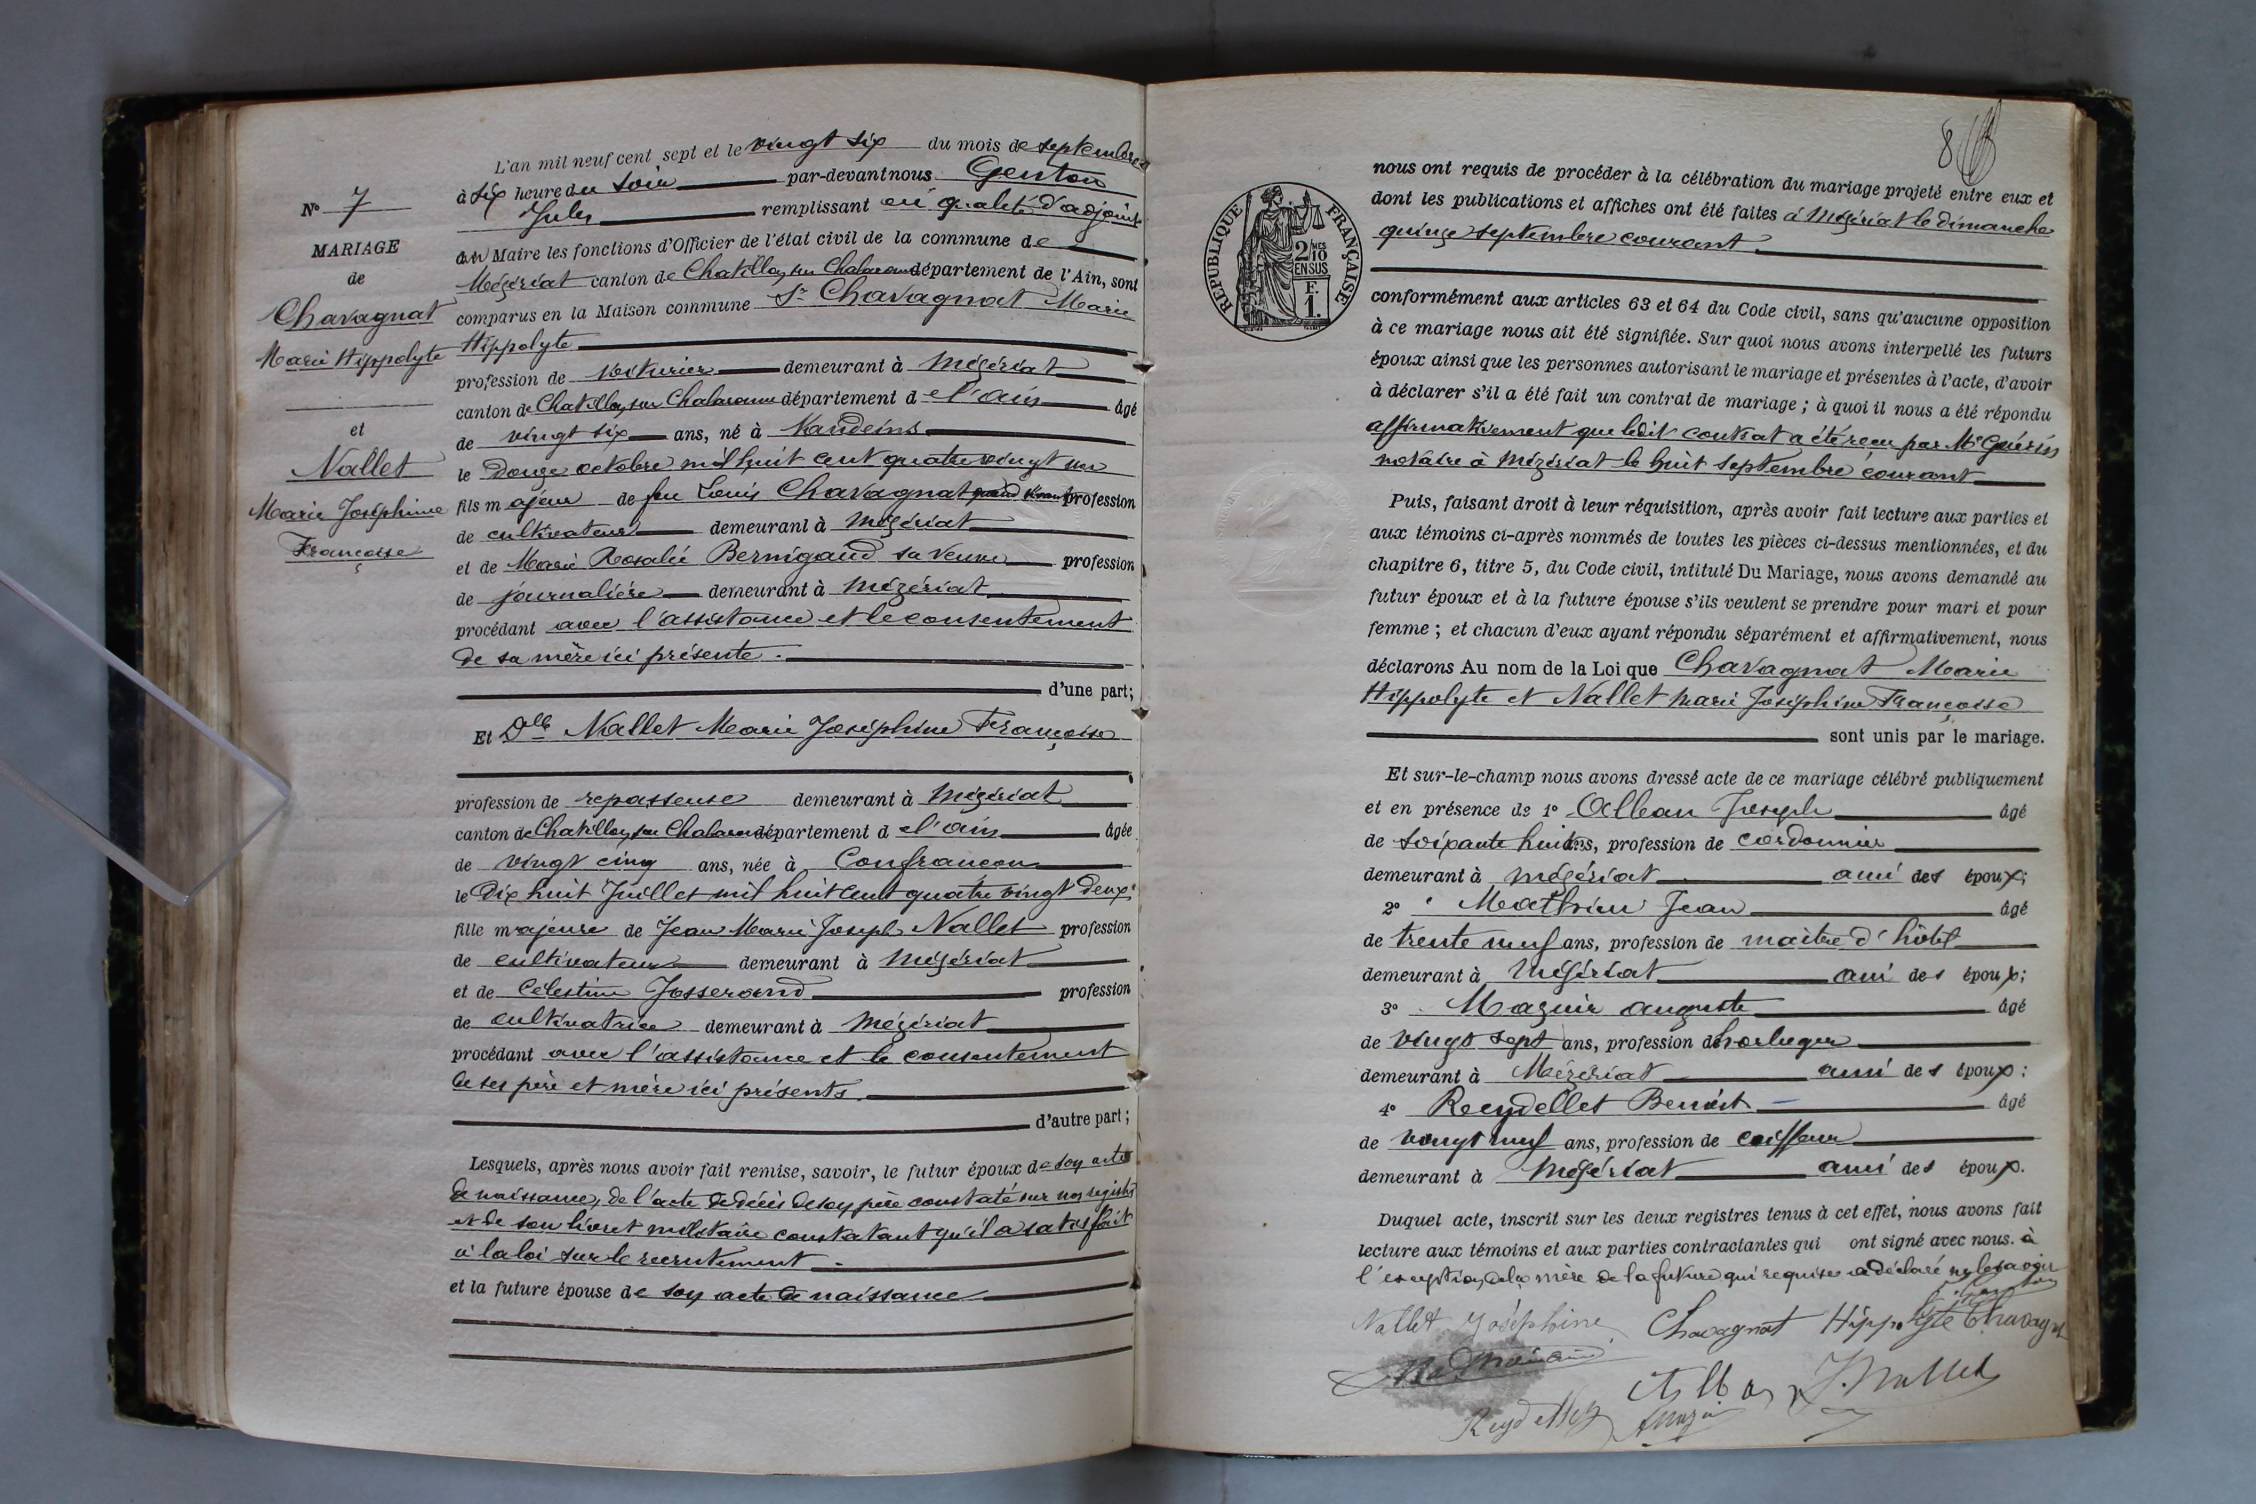 N° 7
MARIAGE
de
Chavagnat
Marie Hippolyte
et
Nallet
Marie Joséphine
Françoise
L'an mil neuf cent sept et le vingt six du mois de septembre
à six heure du soir par-devant nous Genton
Jules remplissant en qualité d'adjoint
au Maire les fonctions d'Officier de l'état civil de la commune de
Mézériat canton de Chatillon sur Chalaronne département de l'Ain, sont
comparus en la Maison commune Sr Chavagnat Marie
Hippolyte
profession de voiturier demeurant à Mézériat
canton de Chatillon sur Chalaronne département d e l'ain âgé
de vingt six ans, né à Vandeins
le Douze octobre mil huit cent quatre vingt un
fils majeur de feu Louis Chavagnat quand vivant profession
de cultivateur demeurant à Mézériat
et de Marie Rosalie Bernigaud sa veuve profession
de journalière demeurant à Mézériat
procédant avec l'assistance et le consentement
de sa mère ici présente.
d'une part;
Et Dlle Nallet Marie Joséphine Françoise
profession de repasseuse demeurant à Mézériat
canton de Chatillon sur Chalaronne département d e l'ain âgée
de vingt cinq ans, née à Confrançon
le Dix huit Juillet mil huit cent quatre vingt deux
fille majeure de Jean Marie Joseph Nallet profession
de cultivateur demeurant à Mézériat
et de Célestine Josserand profession
de cultivatrice demeurant à Mézériat
procédant avec l'assistance et le consentement
de ses père et mère ici présents.
d'autre part;
Lesquels, après nous avoir fait remise, savoir, le futur époux de son acte
de naissance, de l'acte de décès de son père constaté sur nos registres
et de son livret militaire constatant qu'il a satisfait
à la loi sur le recrutement.
et la future épouse de son acte de naissance
8
RÉPUBLIQUE FRANÇAISE
2/10 MES
EN SUS
F.
1.
nous ont requis de procéder à la célébration du mariage projeté entre eux et
dont les publications et affiches ont été faites à Mézériat le dimanche
quinze septembre courant.
conformément aux articles 63 et 64 du Code civil, sans qu'aucune opposition
à ce mariage nous ait été signifiée. Sur quoi nous avons interpellé les futurs
époux ainsi que les personnes autorisant le mariage et présentes à l'acte, d'avoir
à déclarer s'il a été fait un contrat de mariage; à quoi il nous a été répondu
affirmativement que ledit contrat a été reçu par Me Guérin
notaire à Mézériat le huit septembre courant
Puis, faisant droit à leur réquisition, après avoir fait lecture aux parties et
aux témoins ci-après nommés de toutes les pièces ci-dessus mentionnées, et du
chapitre 6, titre 5, du Code civil, intitulé Du Mariage, nous avons demandé au
futur époux et à la future épouse s'ils veulent se prendre pour mari et pour
femme; et chacun d'eux ayant répondu séparément et affirmativement, nous
déclarons Au nom de la Loi que Chavagnat Marie
Hippolyte et Nallet Marie Joséphine Françoise
sont unis par le mariage.
Et sur-le-champ nous avons dressé acte de ce mariage célébré publiquement
et en présence de 1° Alban Joseph âgé
de soixante huit ans, profession de cordonnier
demeurant à Mézériat ami des époux;
2° Mathieu Jean âgé
de trente neuf ans, profession de maître d'hôtel
demeurant à Mézériat ami des époux;
3° Mazuir auguste âgé
de vingt sept ans, profession d'horloger
demeurant à Mézériat ami des époux;
4° Reydellet Benoit âgé
de vingt neuf ans, profession de coiffeur
demeurant à Mézériat ami des époux.
Duquel acte, inscrit sur les deux registres tenus à cet effet, nous avons fait
lecture aux témoins et aux parties contractantes qui ont signé avec nous. à
l'exception de la mère de la future qui requise a déclaré ne le savoir
Nallet Joséphine Chavagnat Hippolyte Chavagnat
Alban J. Nallet
Reydellet Amazuir